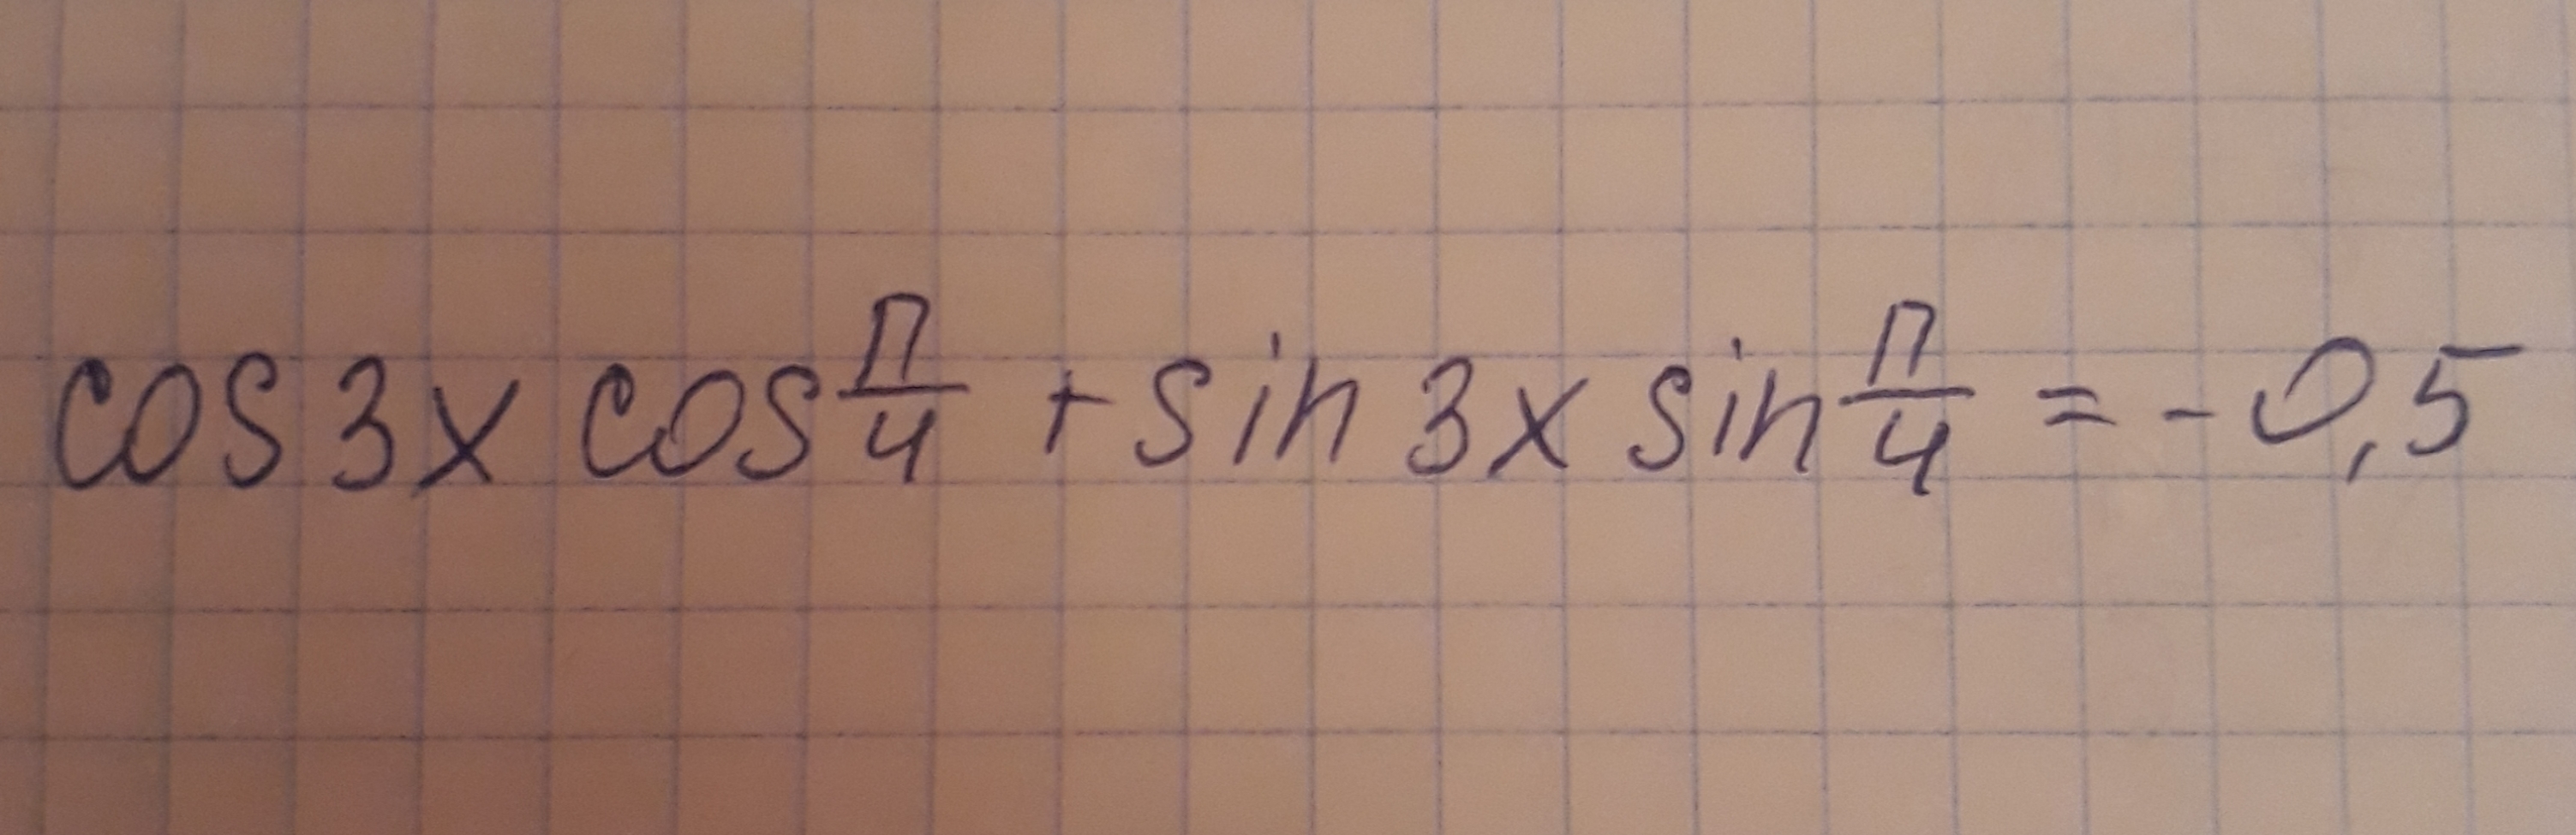 cos 3x cos П/4 + sin 3x sin П/4 = - 0,5